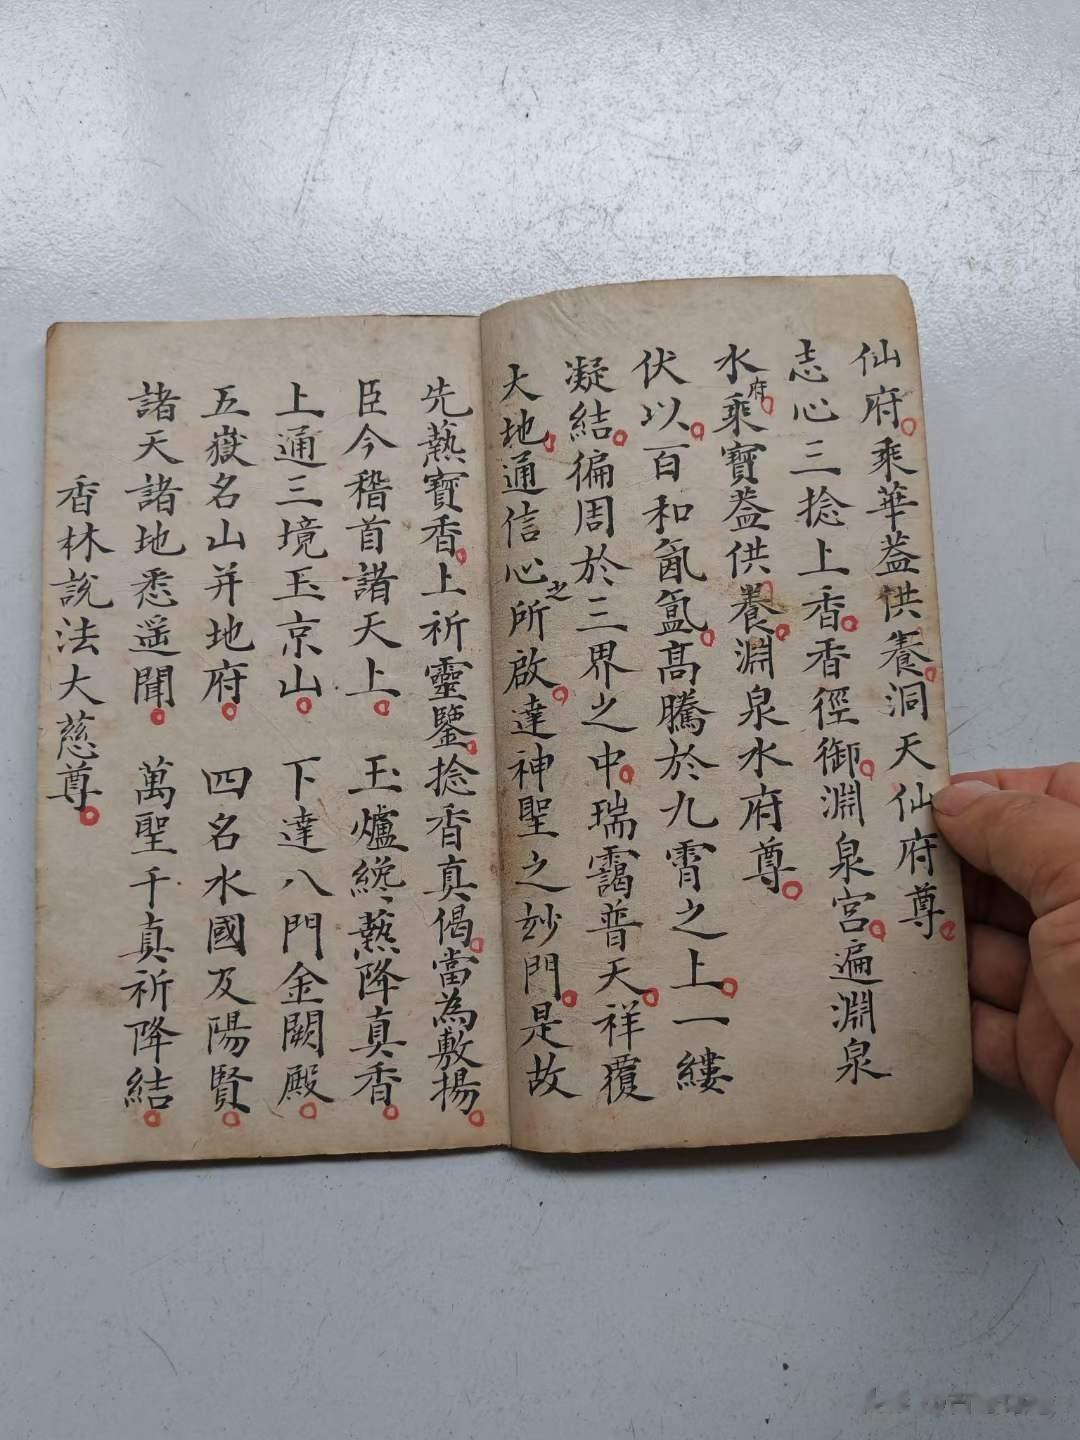 仙府乘華蓋供養洞天仙府尊
志心三捻上香香徑御淵泉宮遍淵泉
水府乘寶蓋供養淵泉水府尊
伏以百和氤氳高騰於九霄之上一縷
凝結徧周於三界之中瑞靄普天祥覆
大地通信心之所啟達神聖之妙門是故
先爇寶香上祈靈鑒捻香真偈當為敷揚
臣今稽首諸天上 玉爐纔爇降真香
上通三境玉京山 下達八門金闕殿
五嶽名山并地府 四名水國及陽賢
諸天諸地悉遥聞 萬聖千真祈降結
香林說法大慈尊